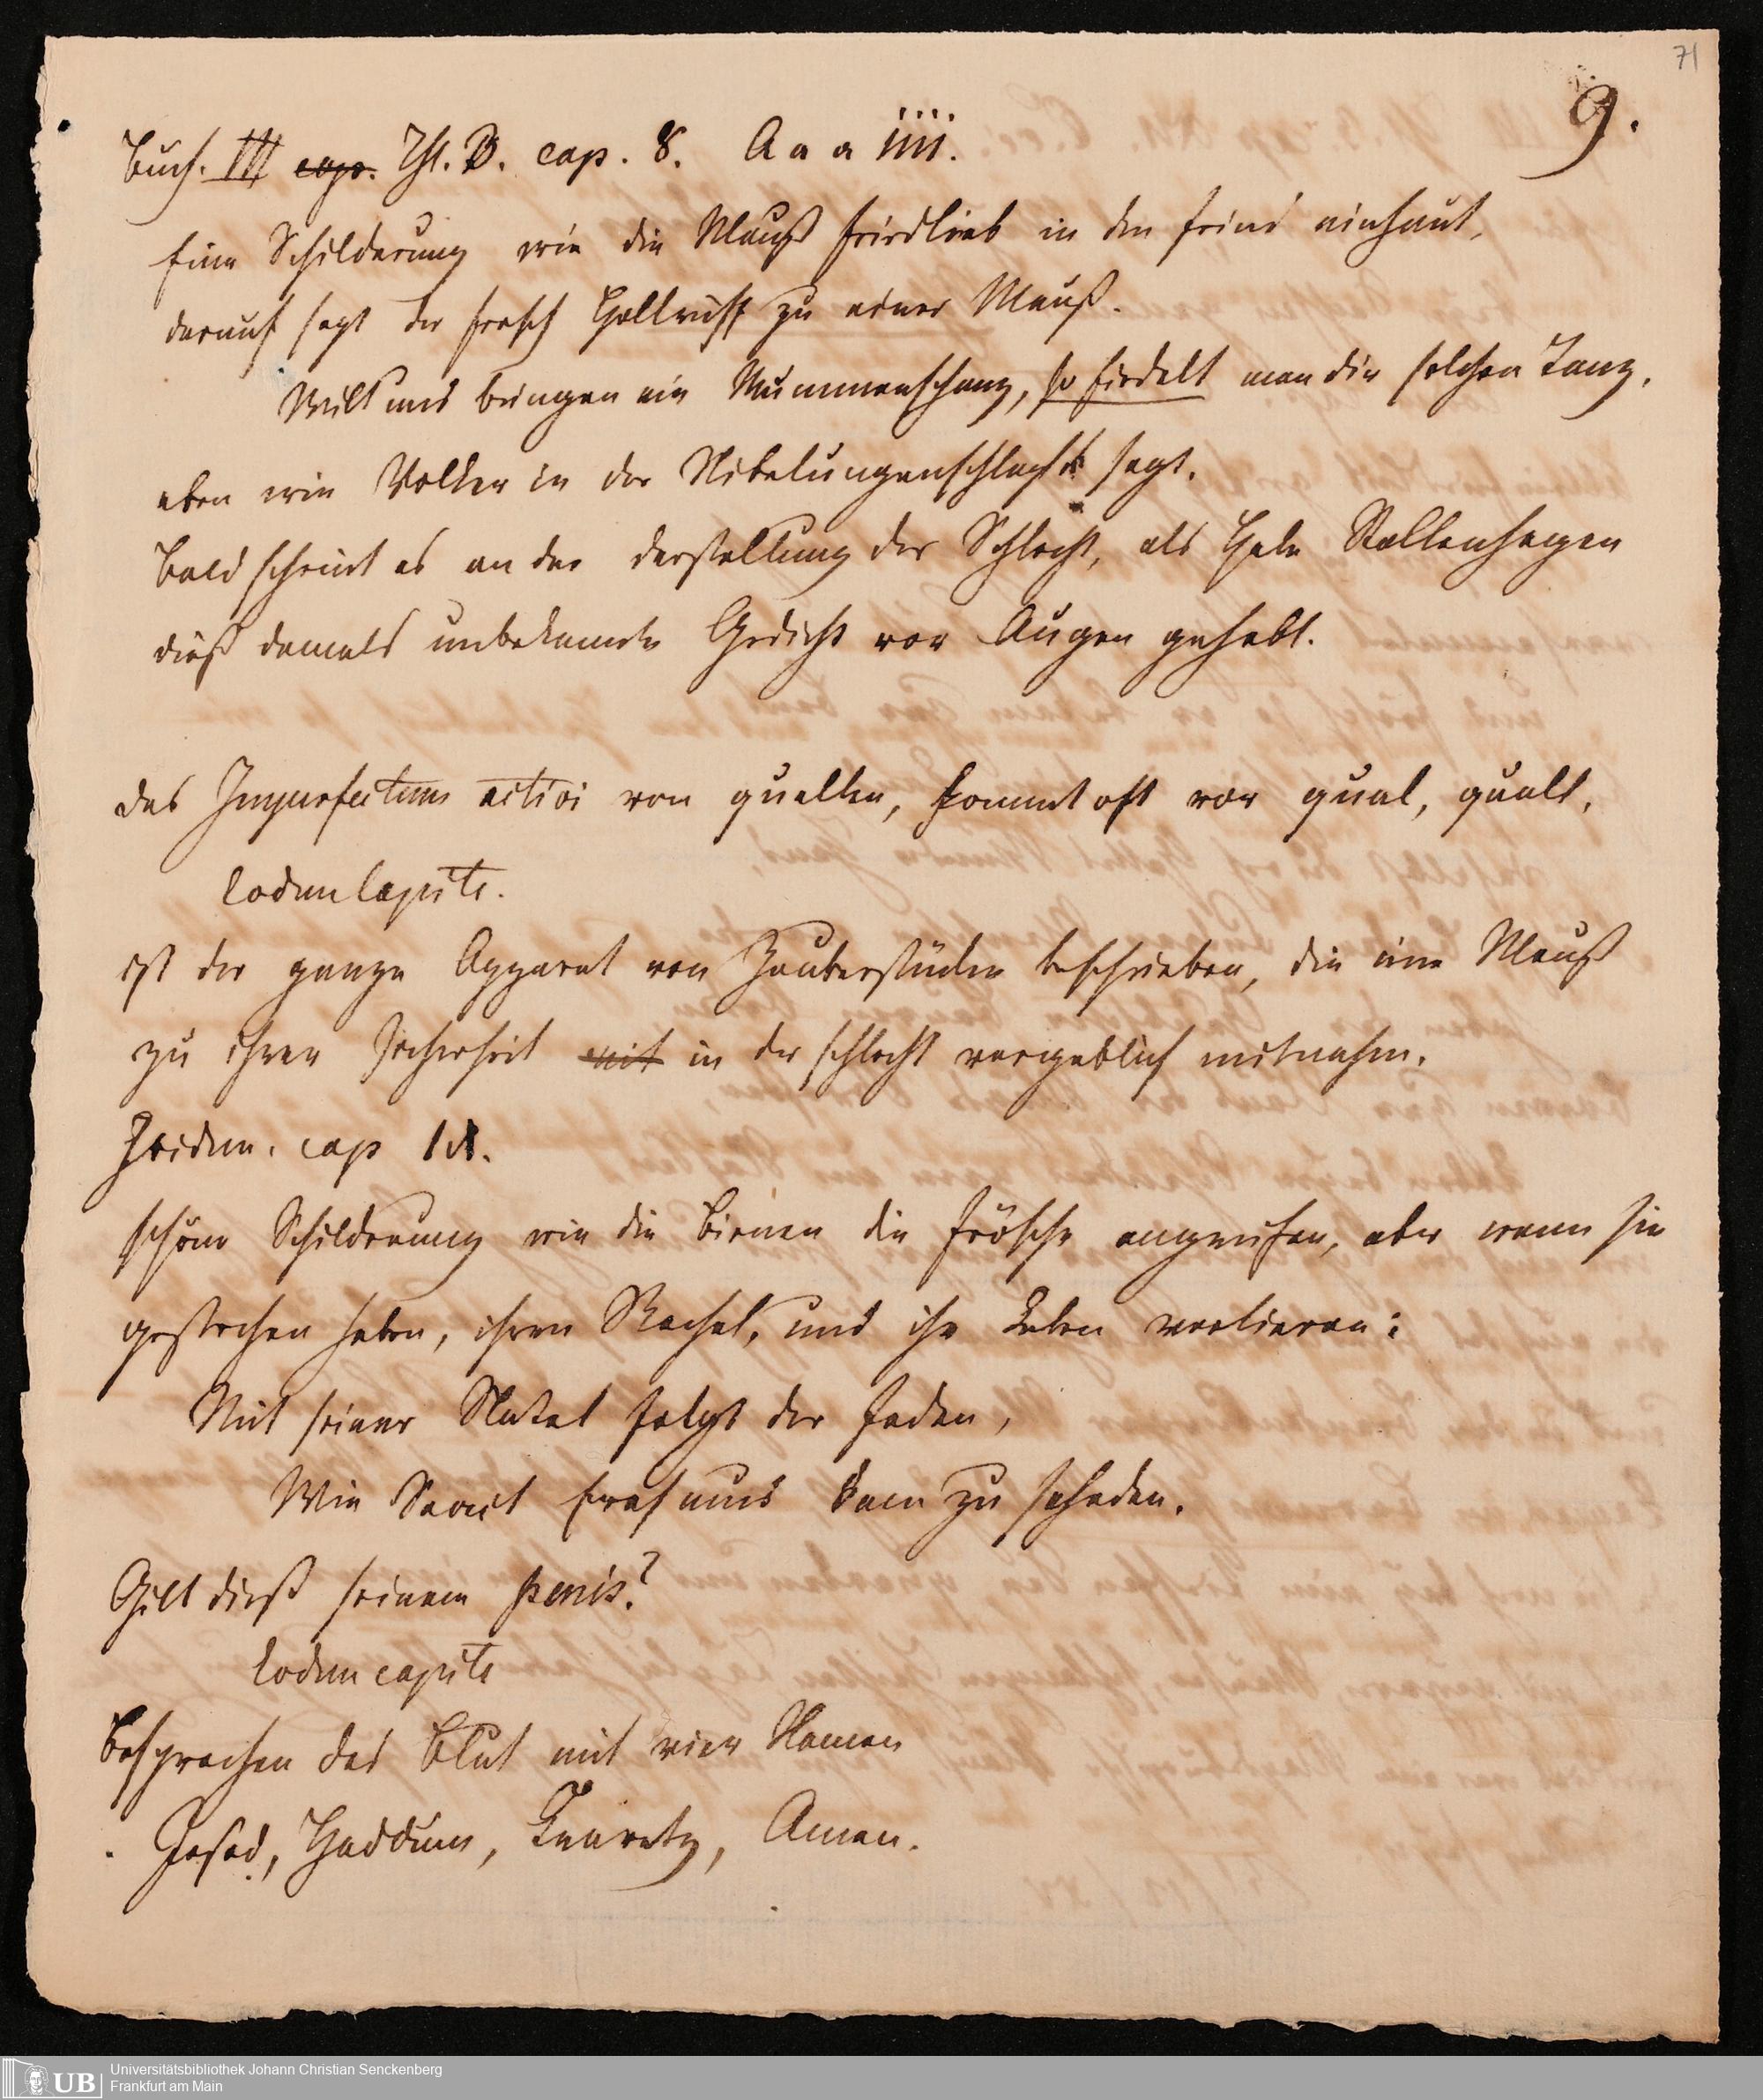 71
9.
Buch. III cap. Thl. D. cap. 8. A a a iiii.
Eine Schilderung wie die Mauß Friedlieb in den Feind einhaut,
darauf sagt der Frosch Gollruff zu einer Mauß.
Wilt uns bringen ein Mummenschanz, so fiedelt man dir solchen Tanz.
eben wie Volker in der Nibelungenschlacht sagt.
Bald scheint es an der Darstellung der Schlacht, als habe Rollenhagen
dieß damals unbekannte Gedicht vor Augen gehabt.
das Imperfectum activi von quellen, kommt oft vor qual, quall,
Eodem Capite.
ist der ganze Apparat von Zauberstücken beschrieben, die eine Mauß
zu ihrer Sicherheit mit in der Schlacht vergeblich mitnahm.
Ibidem. cap 11.
schöne Schilderung wie die Bienen die Frösche angreifen, aber wenn sie
gestochen haben, ihren Stachel, und ihr Leben verlieren:
Mit seiner Natel folgt der Faden,
Wie Sanct Erasmus kam zu schaden.
Gilt dieß seinem penis?
Eodem capite
Besprechen das Blut mit vier Namen
Jesod, Haddum, Amen.
Universitätsbibliothek Johann Christian Senckenberg
Frankfurt am Main
UB